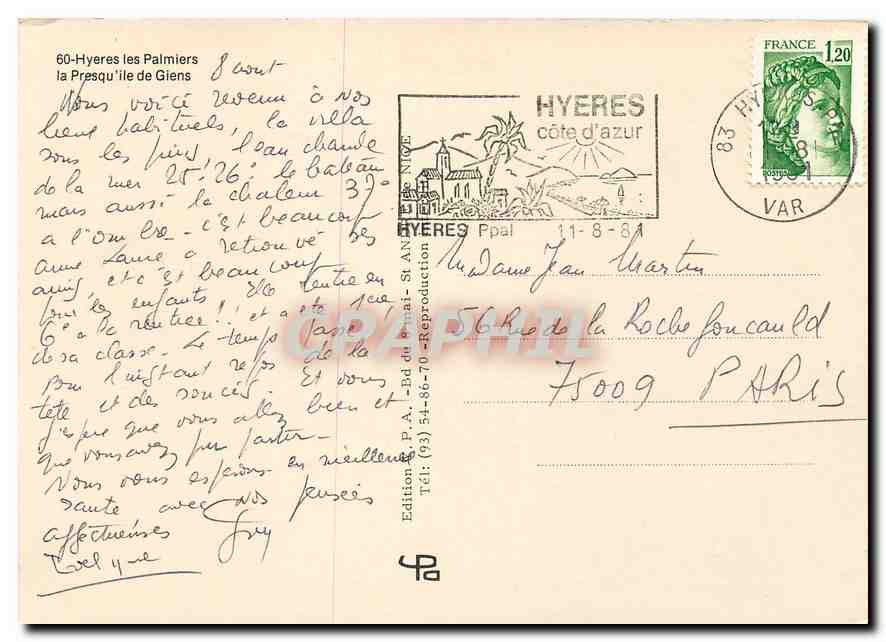 60-Hyeres les Palmiers
la Presqu'ile de Giens
8 aout
Nous voici revenu à nos
lieux habituels, la villa
sous les pins, l'eau chaude
de la mer 25-26° le bateau
mais aussi la chaleur 37°
a l'ombre - c'est beaucoup
Anne Laure a retrouvé ses
amis, et c'est beaucoup
pour les enfants. Elle rentre en
6° a la rentrée!! et a été 1ère
de sa classe - Le temps passe!
Pour l'instant repos de la
tete et des soucis. Et vous
j'espere que vous allez bien et
que vous avez pu partir -
Nous vous esperons en meilleure
sante avec nos pensées
affectueuses Guy
Evelyne
Edition E.P.A. -Bd de Mai- St ANDRE de NICE
Tél: (93) 54-86-70 -Reproduction
HYERES
côte d'azur
HYERES Ppal 11-8-81
83 HYERES PPAL
1981
VAR
FRANCE 1,20
POSTES
Madame Jean Martin
56 Rue de la Rochefoucauld
75009 PARIS
CPARPHIL